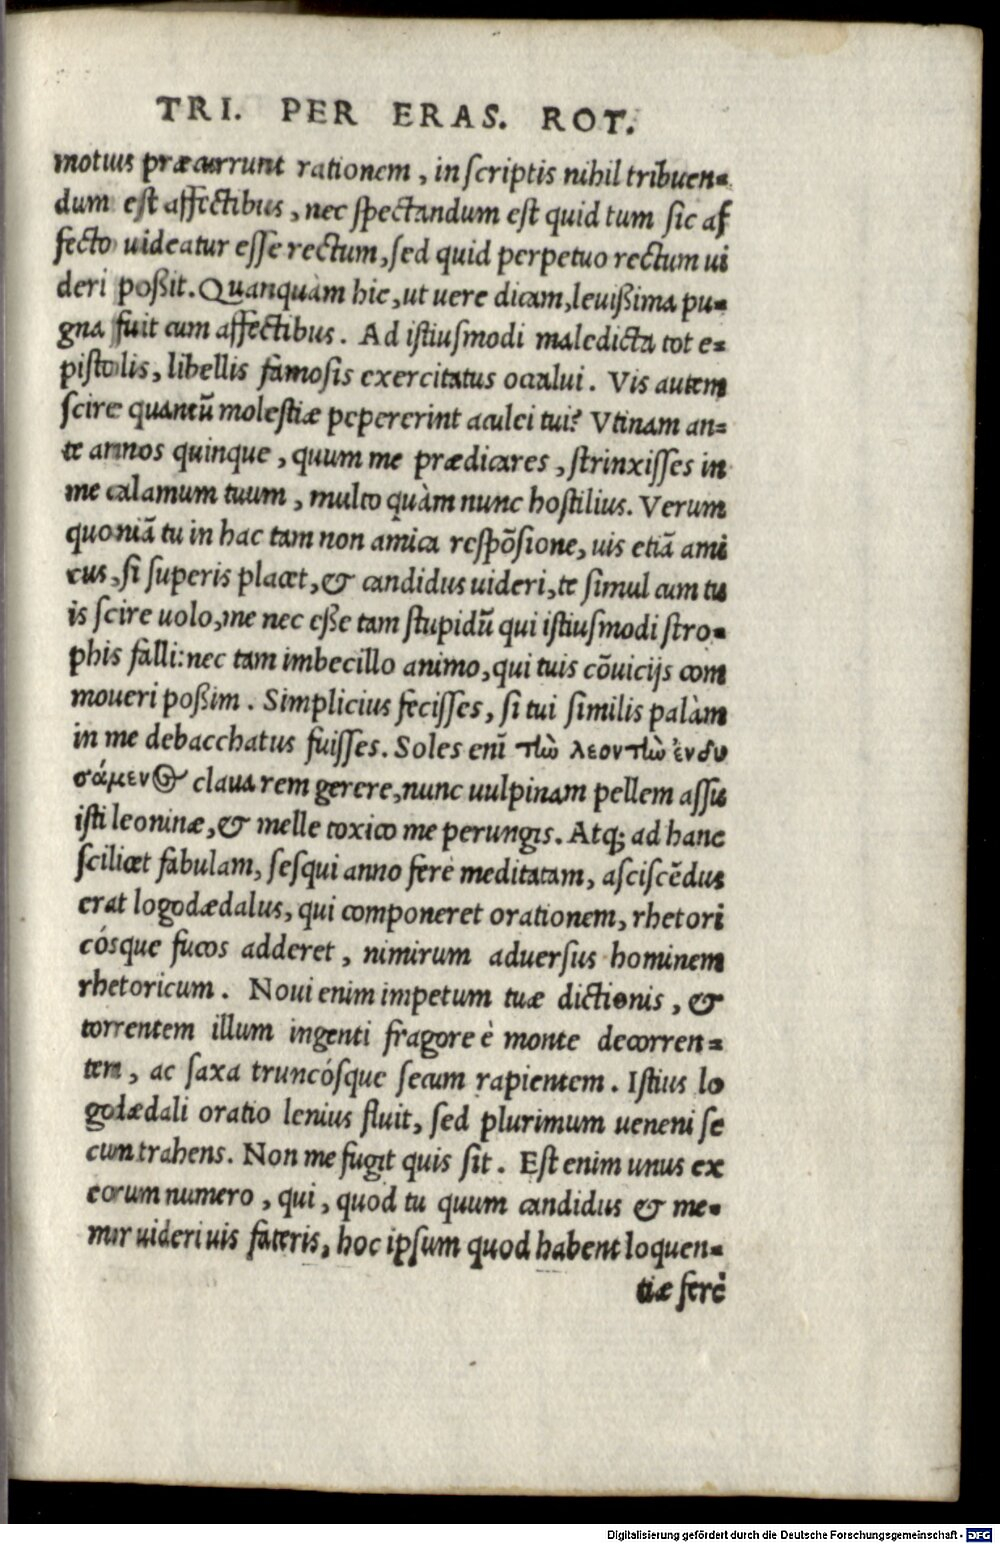 TRI. PER ERAS. ROT.
motuus præcurrunt rationem, in scriptis nihil tribuen=
dum est affectibus, nec spectandum est quid tum sic af
fecto uideatur esse rectum, sed quid perpetuo rectum ui
deri poßit. Quanquàm hic, ut uere dicam, leuißima pu=
gna fuit cum affectibus. Ad istiusmodi maledicta tot e=
pistolis, libellis famosis exercitatus occalui. Vis autem
scire quantũ molestiæ pepererint aculei tui? Vtinam an=
te annos quinque, quum me prædicares, strinxisses in
me calamum tuum, multo quàm nunc hostilius. Verum
quoniã tu in hac tam non amica respõsione, uis etiã ami
cus, si superis placet, & candidus uideri, te simul cum tu
is scire uolo, me nec eße tam stupidũ qui istiusmodi stro=
phis falli: nec tam imbecillo animo, qui tuis cõuicijs com
moueri poßim. Simplicius fecisses, si tui similis palàm
in me debacchatus fuisses. Soles enĩ τὼ λεοντὼ ἐνδυ
σάμενος claua rem gerere, nunc uulpinam pellem assu
isti leoninæ, & melle toxico me perungis. Atq; ad hanc
scilicet fabulam, sesqui anno ferè meditatam, asciscẽdus
erat logodædalus, qui componeret orationem, rhetori
cósque fucos adderet, nimirum aduersus hominem
rhetoricum. Noui enim impetum tuæ dictionis, &
torrentem illum ingenti fragore è monte decorren=
tem, ac saxa truncósque secum rapientem. Istius lo
godædali oratio lenius fluit, sed plurimum ueneni se
cum trahens. Non me fugit quis sit. Est enim unus ex
eorum numero, qui, quod tu quum candidus & me=
mor uideri uis fateris, hoc ipsum quod habent loquen=
tiæ ferè
Digitalisierung gefördert durch die Deutsche Forschungsgemeinschaft - DFG